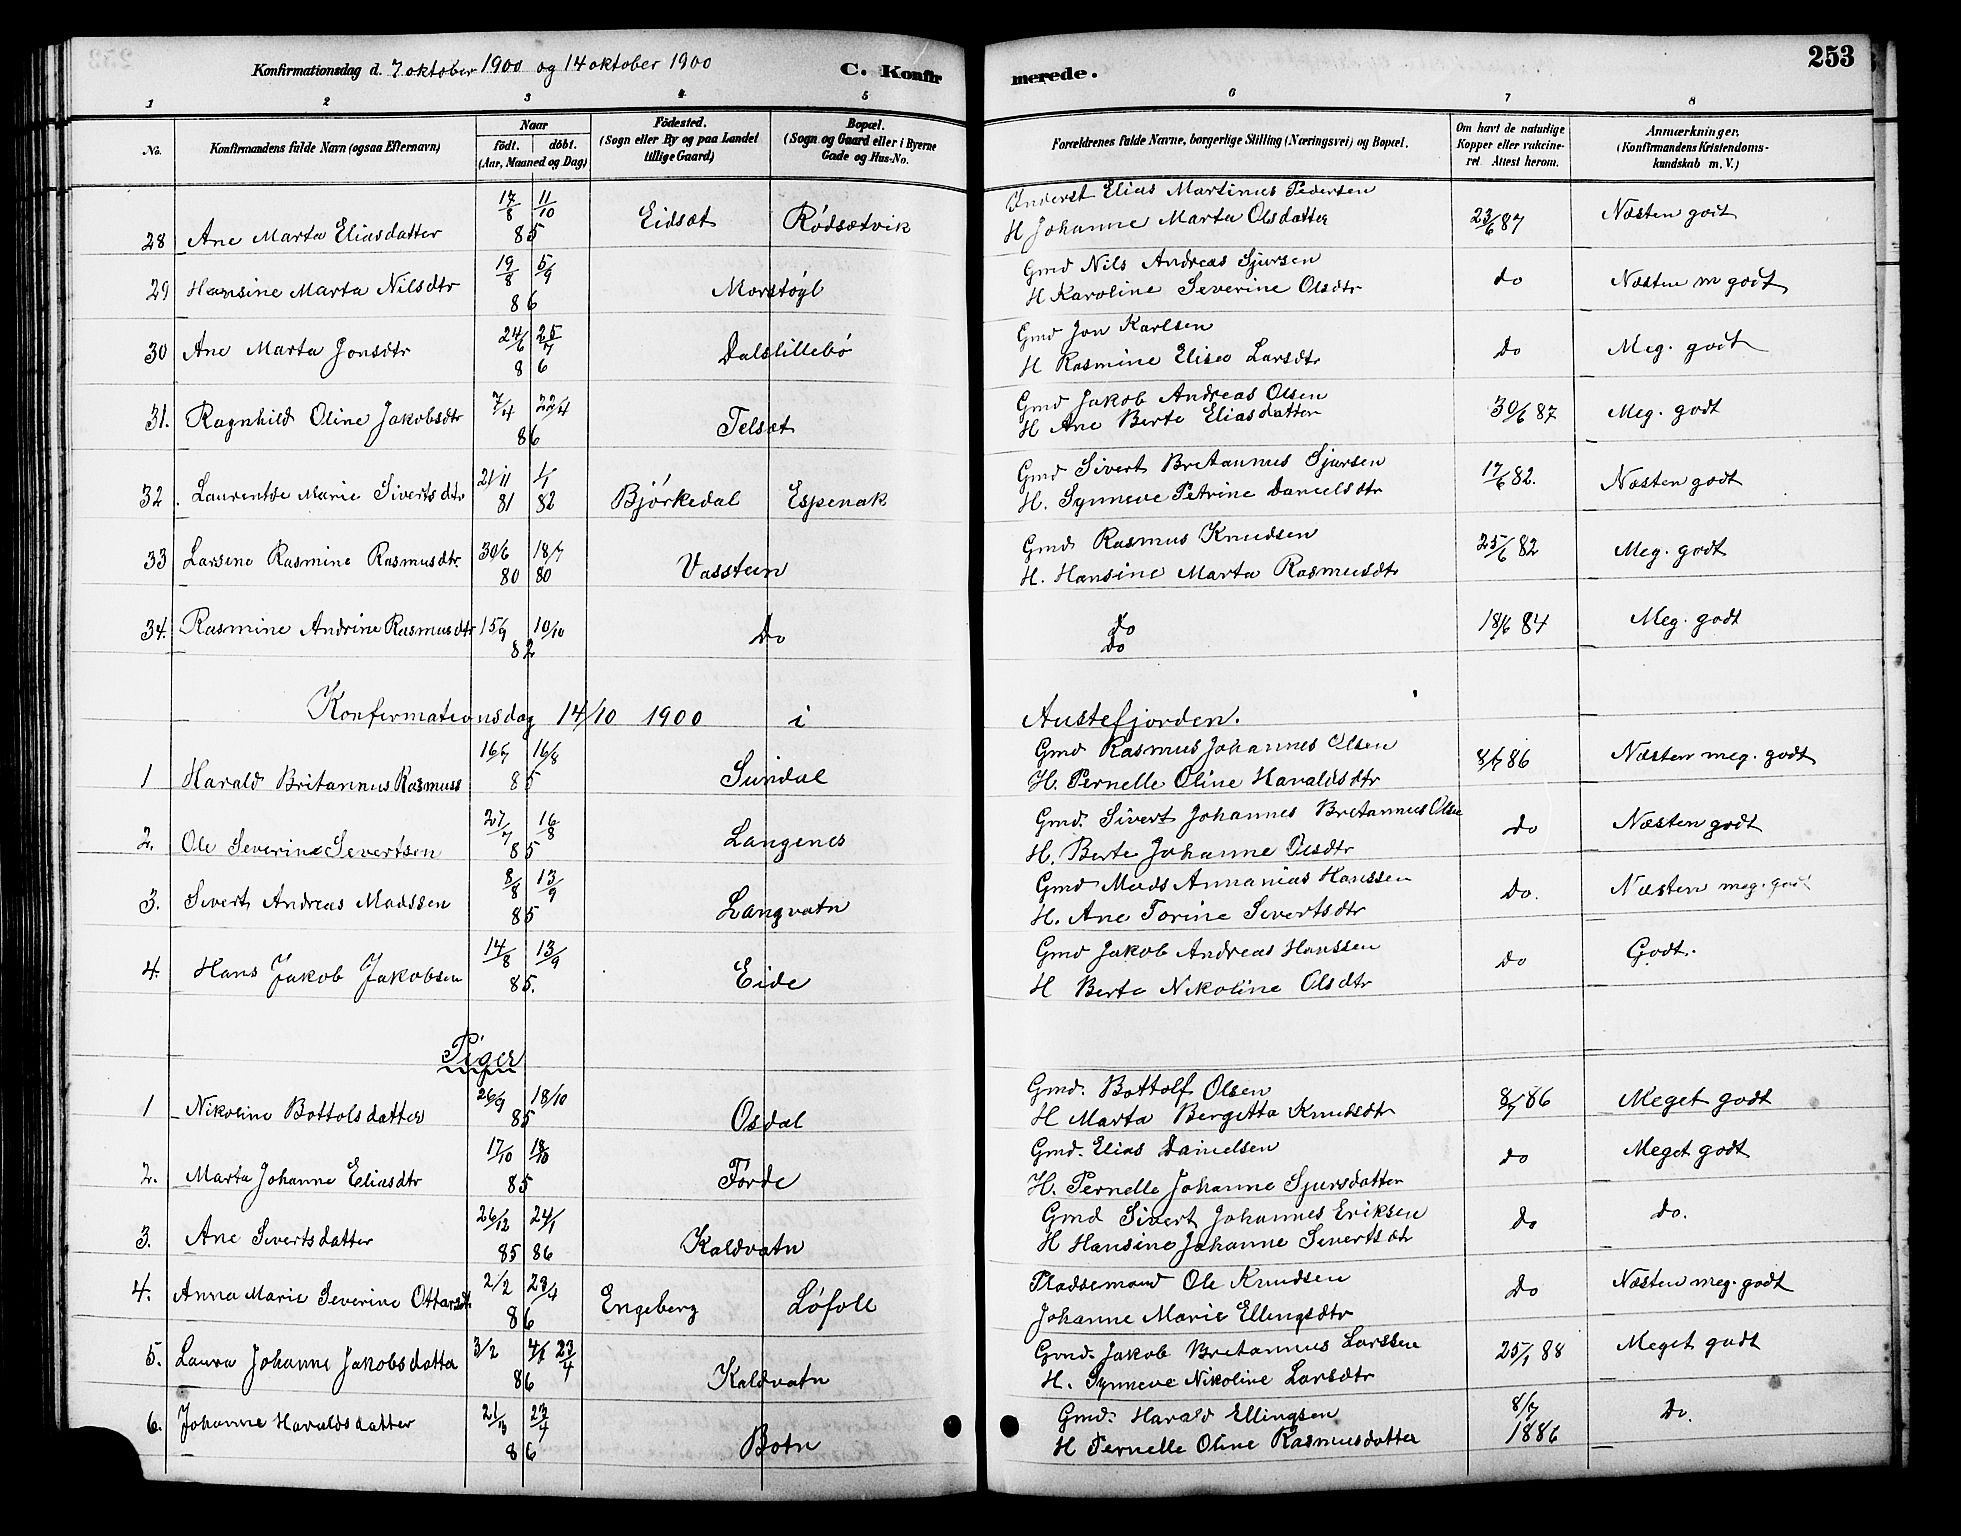 Konfirmationsdag d. 7 oktober 1900 og 14 oktober 1900 C. Konfirmerede. 253
1 2 3 4 5 6 7 8
No. Konfirmandens fulde Navn (ogsaa Efternavn) Naar født. døbt. (Aar, Maaned og Dag) Fødested. (Sogn eller By og paa Landet tillige Gaard) Bopæl. (Sogn og Gaard eller i Byerne Gade og Hus-No. Forældrenes fulde Navne, borgerlige Stilling (Næringsvei) og Bopæl. Om havt de naturlige Kopper eller vakcineret. Attest herom. Anmærkninger. (Konfirmandens Kristendomskundskab m. V.)
28 Ane Marta Eliasdatter 17/8 11/10 85 Eidsæt Rødsætvik Inderst Elias Martinus Pedersen
H Johanne Marta Olsdatter 23/6 87 Næsten godt
29 Hansine Marta Nilsdtr 19/8 5/9 86 Morstøyl Gmd Nils Andreas Sjursen
H Karoline Severine Olsdtr do Næsten m godt
30 Ane Marta Jonsdtr 24/6 25/7 86 Dalslillebø Gmd Jon Karlsen
H Rasmine Elisa Larsdtr do Meg. godt
31. Ragnhild Oline Jakobsdtr 7/4 22/4 86 Felsæt Gmd Jakob Andreas Olsen
H Ane Berte Eliasdatter 30/6 87 Meg. godt
32. Laurentse Marie Sivertsdtr 21/11 81 1/1 82 Bjørkedal Espenak Gmd Sivert Bretannus Sjursen
H. Synneve Petrine Danielsdtr 17/6 82. Næsten godt
33 Larsine Rasmine Rasmusdtr. 30/6 80 18/7 80 Vasstun Gmd Rasmus Knudsen
H. Hansine Marta Rasmusdtr 25/6 82 Meg. godt
34. Rasmine Andrine Rasmusdtr 15/9 10/10 82 Do do
do 18/6 84 Meg. godt
Konfermationsdag 14/10 1900 i Austefjorden.
1 Harald Britannus Rasmuss 16/7 16/8 85 Sundal Gmd Rasmus Johannes Olsen
H. Pernelle Oline Haraldsdtr 8/7 86 Næsten meg. godt
2. Ole Severin Severtsen 27/7 16/8 85 Langenes Gmd. Sivert Johannes Bretannus Olsen
H. Berte Johanne Olsdtr do Næsten godt
3. Sivert Andreas Madssen 8/8 13/9 85 Langvatn Gmd Mads Annanias Hanssen
H. Ane Torine Severtsdtr Do. Næsten meg. godt
4. Hans Jakob Jakobsen 14/8 13/9 85. Eide Gmd Jakob Andreas Hanssen
H Berte Nikoline Olsdtr do Godt.
Piger
1 Nikoline Bottolsdatter 26/9 18/10 85 Osdal Gmd. Bottolf Olsen
H Marta Bergitta Knudsdtr 8/7 86 Meget godt
2. Marta Johanne Eliasdtr 17/10 18/10 85 Førde Gmd. Elias Danielsen
H. Pernelle Johanne Sjursdatter do Meget godt
3. Ane Sivertsdatter 26/12 85 24/1 86 Kaldvatn Gmd Sivert Johannes Eriksen
H Hansine Johanne Severtsdtr do do.
4. Anna Marie Severine Ottarsdt 2/2 23/4 86 Engeberg Løfoll Pladsemand Ole Knudsen
Johanne Marie Ellingsdtr do Næsten meg. godt
5. Laura Johanne Jakobsdatter 3/2 23/4 86 Kaldvatn Gmd. Jakob Bretannus Larssen
H. Synneve Nikoline Larsdtr 25/1 88 Meget godt
6. Johanne Haraldsdatter 23/4 86 Botn Gmd. Harald Ellingsen
H Pernelle Oline Rasmusdatter 8/7 1886 Do.